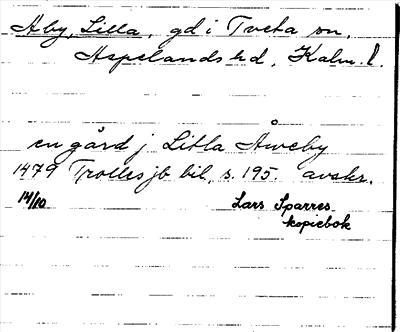 Åby, Lilla, gd i Tveta sn,
Aspelands hd, Kalm. l.
en gård j Litla Åweby
1479 Trolles jb bil, s. 195. avskr.
14/10 Lars Sparres
kopiebok